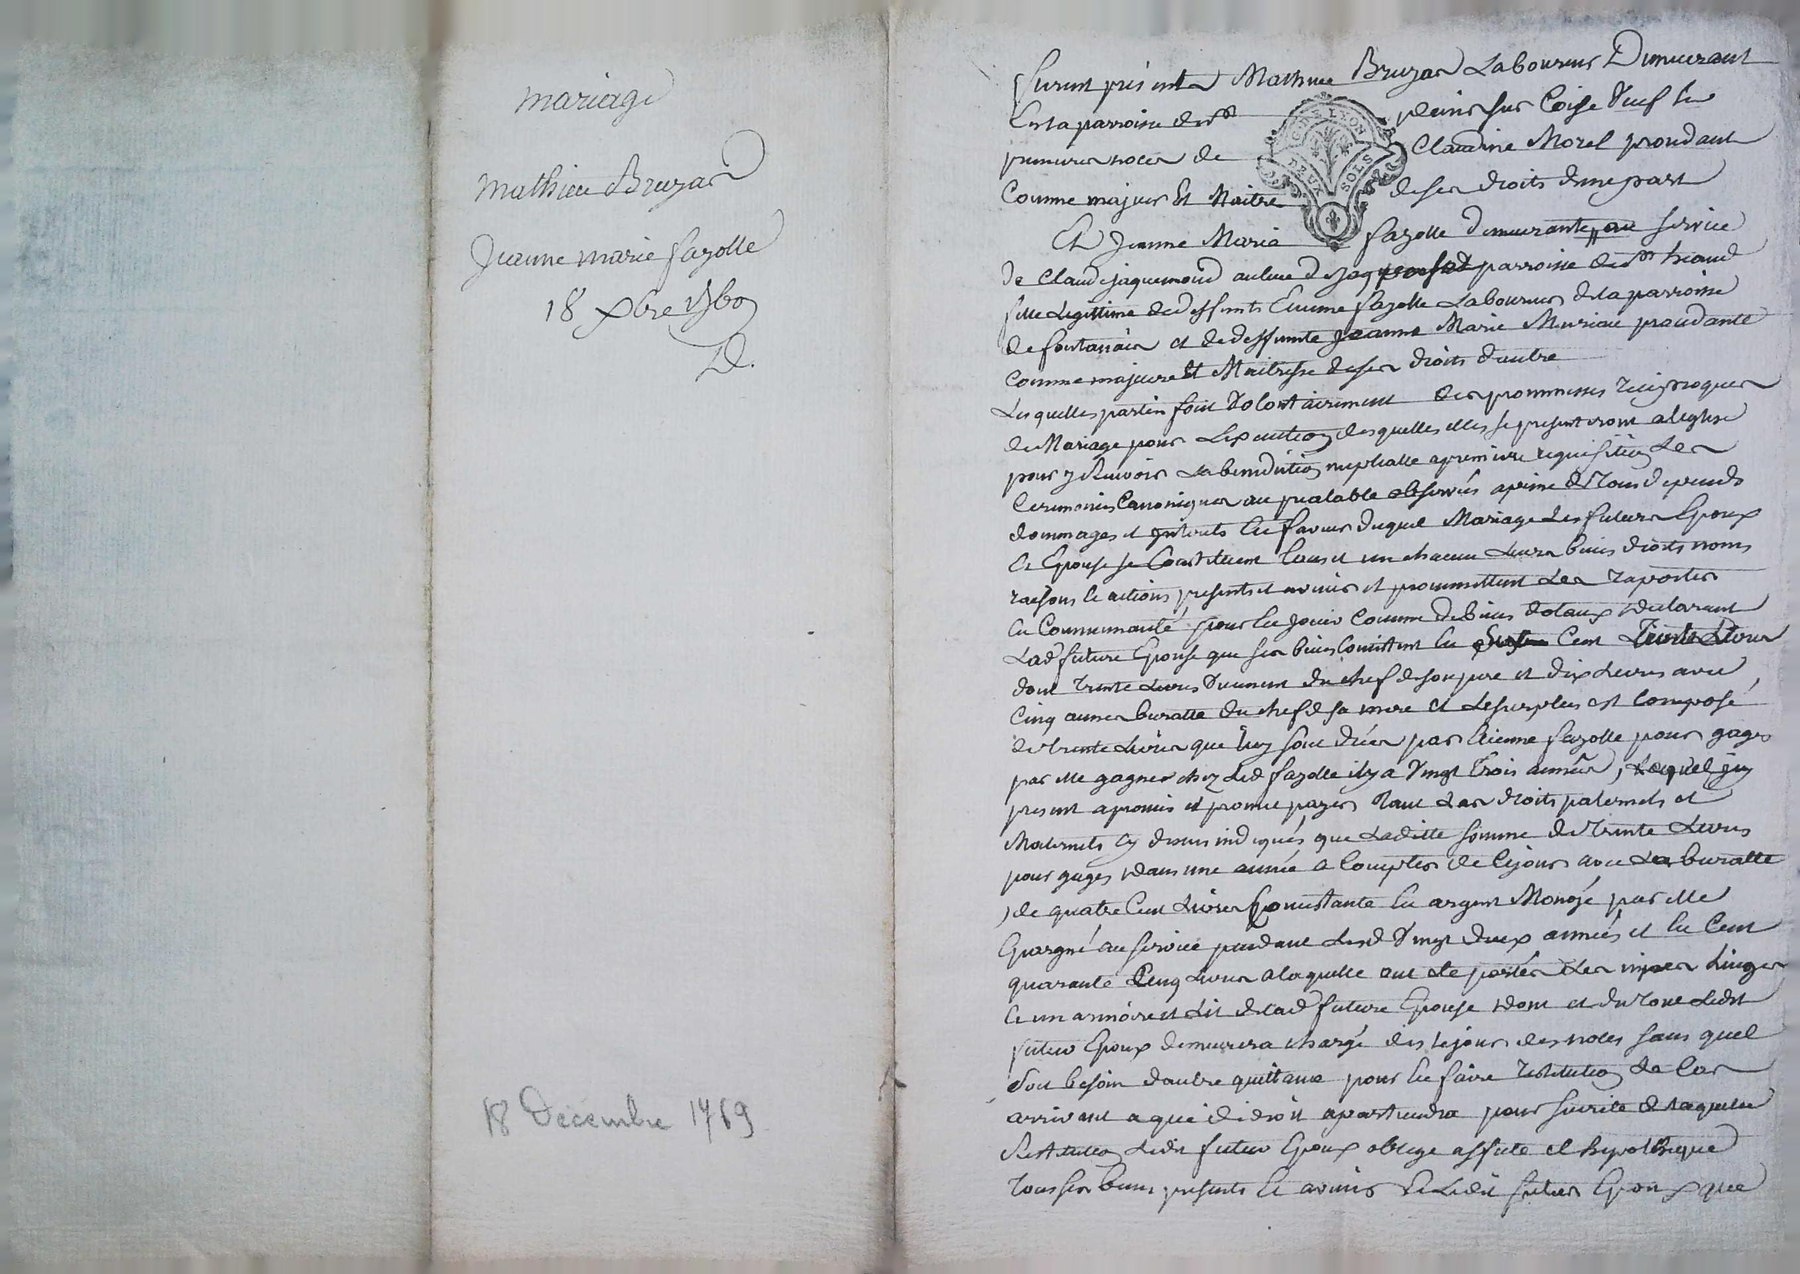 mariage
Mathieu Bruyas
Jeanne marie fayolle
18 xbre 1769
18 Decembre 1769
GEN. LYON
DEUX SOLS
Furent présents Mathieu Bruyas Laboureur Demeurant
En la parroisse de st denis sur Coise veuf en
premieres noces de Claudine Morel procedant
Comme majeur Et Maitre de ses droits d'une part
Et Jeanne Marie fayolle demeurante au service
de Claude jaquemond au lieu de parroisse de st heand
fille Legittime de deffunts Etienne fayolle Laboureur de la parroisse
de fontanais et de deffunte Jeanne Marie procedante
Comme majeure Et Maitresse de ses droits d'autre
Lesquelles parties font Volontairement des prommesses reciproques
de Mariage pour L'execution desquelles elles se presenteront a l'eglise
pour y Recevoir La benediction nuptialle a premiere requisition Les
Ceremonies Canoniques au prealable observées a peine de Tous depends
dommages et interets En faveur duquel Mariage Les futurs Epoux
Et Epouse se Constituent Tous et un chacun Leurs biens droits noms
raisons et actions presents et avenir et promettent Les raporter
En Communauté pour En jouir Comme de biens dotaux declarant
Lad future Epouse que ses biens Consistent En Cent Livres
dont Trente Livres Viennent du chef de son pere et dix Livres avec
Cinq aunes buratte du chef de sa mere et Le surplus est Composé
de trente Livres que luy sont dües par Etienne fayolle pour gages
par elle gagnés chez Led fayolle il y a Vingt Trois années, Lequel icy
present a promis et promet payer Tant Les droits paternels et
Maternels cy dessus indiqués, que Laditte somme de trente Livres
pour gages dans une année a Compter de Ce jour avec La buratte
de quatre Cent Livres Consistante En argent Monoyé par elle
Epargné au service pendant Lesd Vingt deux années et En Cent
quarante Cinq Livres a laquelle ont été portés Les Linges
Et un armoire et Lit de lad future Epouse dont et du Tout Ledit
futur Epoux demeurera chargé des le jour des noces sans quel
soit besoin d'autre quittance pour En faire restitution Le Cas
arrivant a qui de droit apartiendra pour sureté de Laquelle
Restitution Ledit futur Epoux oblige affecte et hypotheque
Tous ses biens presents Et avenir Et Ledit futur Epoux que